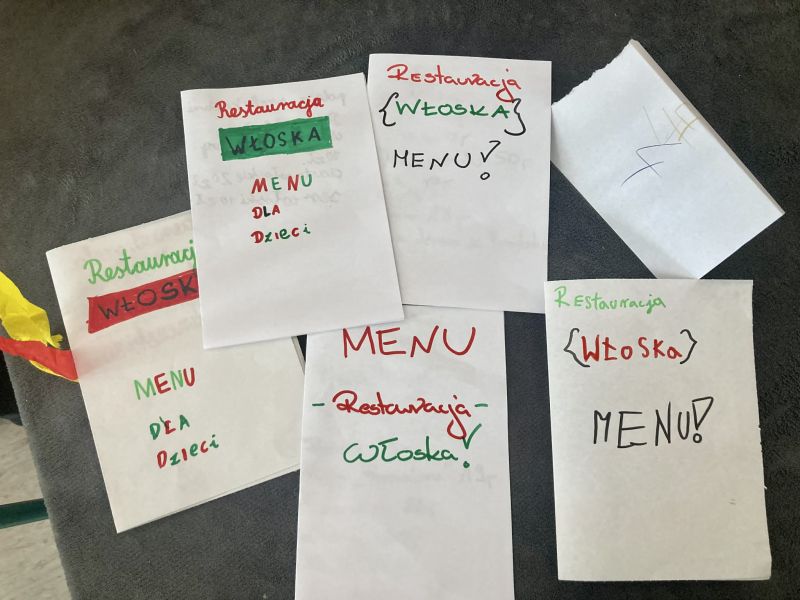 Restauracja
WŁOSKA
MENU
DLA
Dzieci
Restauracja
{WŁOSKA}
MENU!
Restauracj
WŁOSK
MENU
DLA
Dzieci
MENU
- Restauracja -
Włoska!
Restauracja
{WŁoSKa}
MENU!